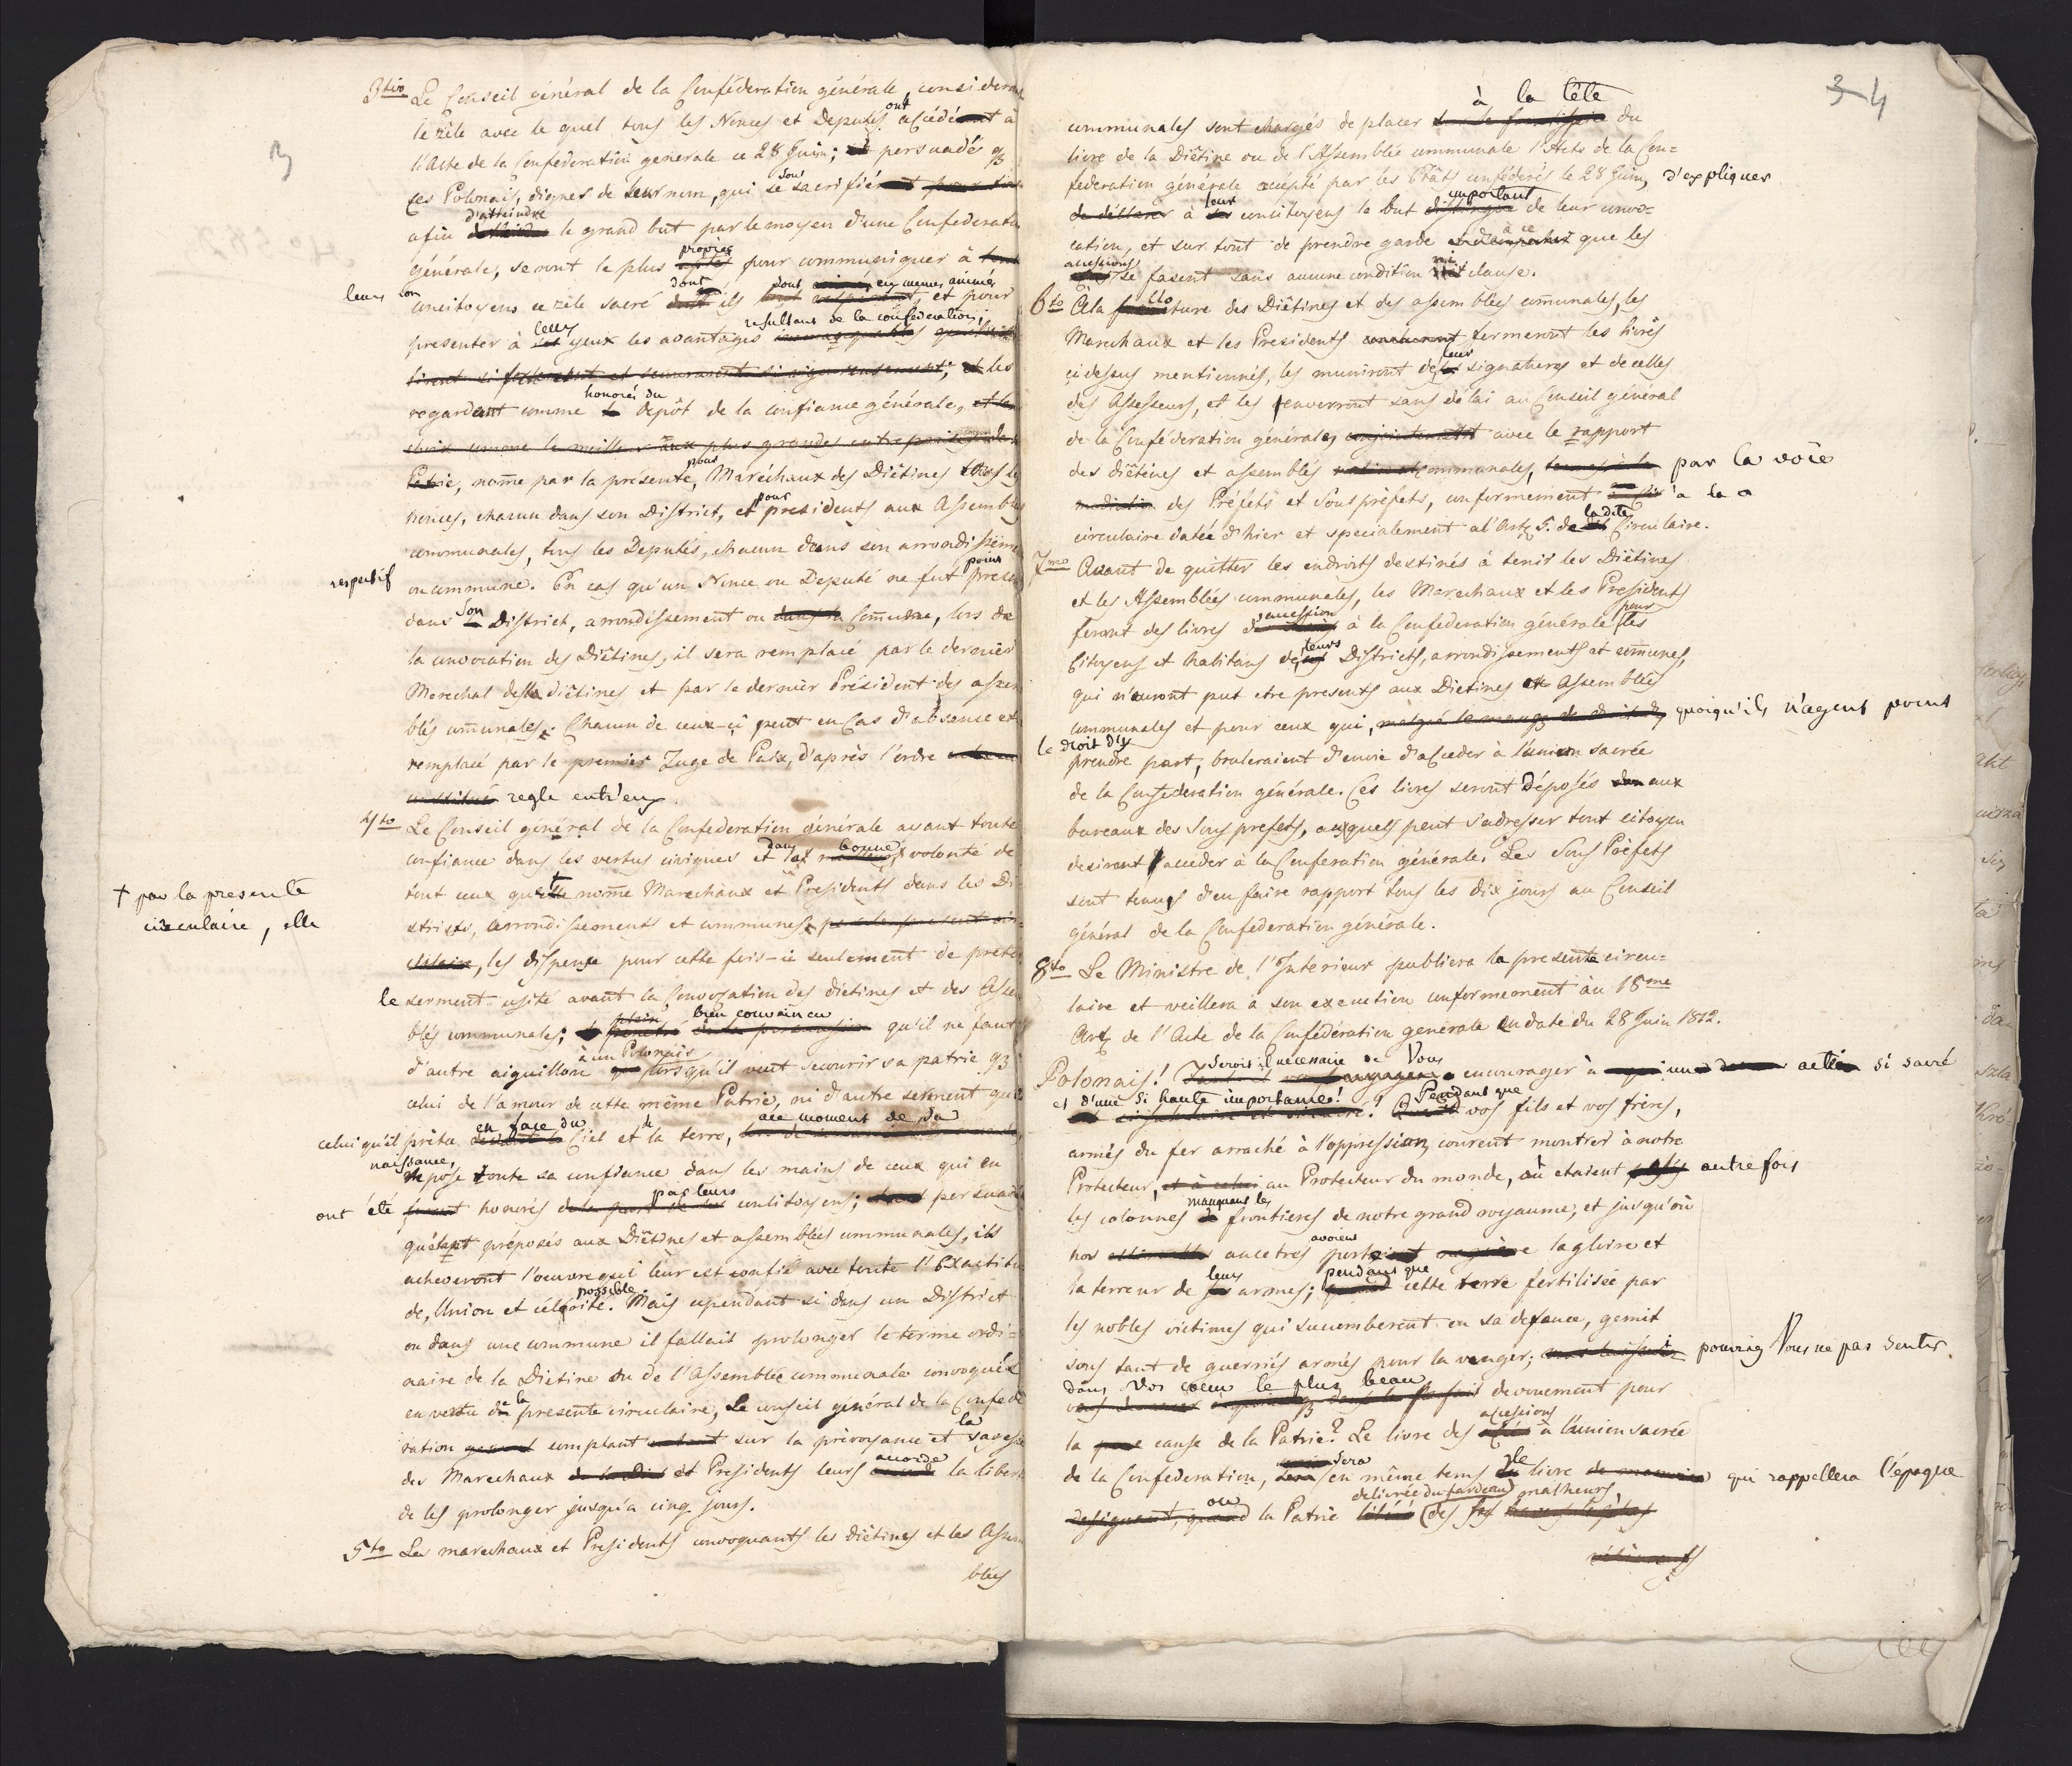 3
3tio Le Conseil général de la Confédération générale, considerant
le zèle avec le quel tous les Nonces et Deputés ont accédé à
l'Acte de la Confédération generale ce 28 Juin; persuadé q
ces Polonais, dignes de leur nom, qui se sont sacrifié
afin d'atteindre le grand but par le moyen d'une Confederation
générale, seront le plus propres pour communiquer à
leurs concitoyens ce zèle sacré dont ils sont eux memes animés, et pour
presenter à leurs yeux les avantages resultans de la confédération; les
regardant comme honorés du depôt de la confiance générale,
nom̄e par la présente, pour Maréchaux des Diëtines tous les
nonces, chacun dans son District, et pour presidents aux Assemblés
communales, tous les Deputés, chacun dans son arrondissement
respectif ou commune. En cas qu'un Nonce ou Deputé ne fut point present
dans son District, arrondissement ou Com̄une, lors de
la convocation des Diëtines, il sera remplacé par le dernier
Marechal des diëtines et par le dernier Président des assem
blés com̄unales. Chacun de ceux-ci peut en Cas d'absence etre
remplacé par le premier Juge de Paix, d'après l'ordre
regle entr'eux.
4to Le Conseil général de la Confederation générale ayant toute
confiance dans les vertus civiques et dans la bonne volonté de
tout ceux qu'elle nom̄e Marechaux et Presidents dans les Di
stricts, arrondissements et communes
+ par la presente
circulaire, elle
les dispense pour cette fois-ci seulement de preter
le serment usité avant la Convocation des diëtines et des Assem
blés communales; bien convaincu qu'il ne faut
d'autre aiguillon à un Polonais lorsqu'il veut secourir sa patrie q
celui de l'amour de cette même Patrie, ni d'autre serment que
celui qu'il prêta en face du Ciel et de la terre, au moment de sa
naissance,
Repose toute sa confiance dans les mains de ceux qui en
ont été honorés par leurs concitoyens; persuadé
qu'étant préposés aux Diëtines et assemblées communales, ils
acheveront l'oeuvre qui leur est confié avec toute l'Exactitu
de, Union et célérité possible. Mais cependant si dans un District
ou dans une commune il fallait prolonger le terme ordi=
naire de la Diëtine ou de l'Assemblée communale convoquée
en vertu de la presente circulaire, Le conseil général de la Confédé
ration comptant sur la prévoyance et la sagesse
des Marechaux et Presidents leurs accorde la liberté
de les prolonger jusqu'a cinq jours.
5to Les marechaux et Presidents convoquants les Diëtines et les Assem
blées
3 4
communales sont chargés de placer à la tête du
livre de la Diëtine ou de l'Assemblée communale l'Acte de la Con=
federation générale accepté par les Etats confédérés le 28 Juin, d'expliquer
à leurs concitoyens le but important de leur convo=
cation, et sur tout de prendre garde à ce que les
accessions se fasent sans aucune condition ni clause.
6to A la cloture des Diëtines et des assemblées com̄unales, les
Marechaux et les Presidents fermeront les livres
ci dessus mentionnés, les muniront de leurs signatures et de celles
des Assesseurs, et les renverront sans délai au Conseil général
de la Confédération générale, avec le rapport
des diëtines et assemblés communales, par la voie
des Préfets et Sous préfets, conformement à la
circulaire datée d'hier et specialement à l'Art. 5. de la dite Circulaire.
7mo Avant de quitter les endroits destinés à tenir les Diëtines
et les Assemblées communales, les Marechaux et les Presidents
feront des livres d'accession à la Confederation générale pour les
Citoyens et habitans de leurs Districts, arrondissements et com̄unes,
qui n'auront put etre presents aux Diëtines et Assemblés
communales et pour ceux qui, quoiqu'ils n'ayent point
le droit d'y
prendre part, bruleraient d'envie d'acceder à l'union sacrée
de la Confederation générale. Ces livres seront déposés aux
bureaux des Sous prefets, auxquels peut s'adresser tout citoyen
desirant acceder à la Conferation générale. Les Sous Prèfets
sont tenus d'en faire rapport tous les dix jours au Conseil
général de la Confederation générale.
8vo Le Ministre de l'Interieur publiera la presente circu=
laire et veillera à son execution conformement au 18me
Art. de l'Acte de la Confédération generale en date du 28 Juin 1812.
Polonais! Seroit il necessaire de Vous encourager à un acte si sacré
et d'une si haute importance! Pendant que vos fils et vos frères,
armés du fer arraché à l'oppression, courent montrer à notre
Protecteur, au Protecteur du monde, où etaient autrefois
les colonnes marquant les frontieres de notre grand royaume, et jusqu'où
nos ancetres avoient porté la gloire et
la terreur de leurs armes; pendant que cette terre fertilisée par
les nobles victimes qui succomberent en sa defance, gemit
sous tant de guerriés armés pour la venger; pouvies Vous ne pas sentir
dans vos coeurs le plus beau devouement pour
la cause de la Patrie? Le livre des accessions à l'union sacrée
de la Confederation, sera en même tems le livre qui rappellera l'époque
où la Patrie delivrée du fardeau des malheurs